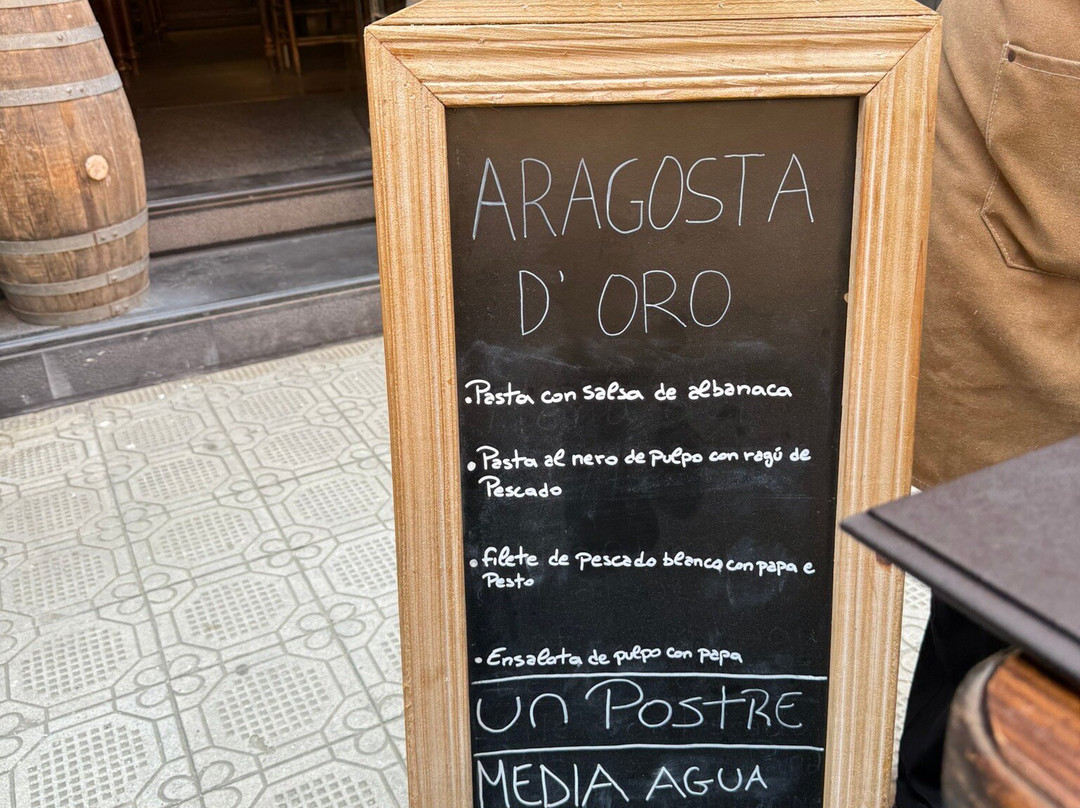 ARAGOSTA
D' ORO
•Pasta con salsa de albanaca
•Pasta al nero de pulpo con ragú de
Pescado
•filete de pescado blanco con papa e
Pesto
•Ensalata de pulpo con papa
Un POSTRE
MEDIA AGUA